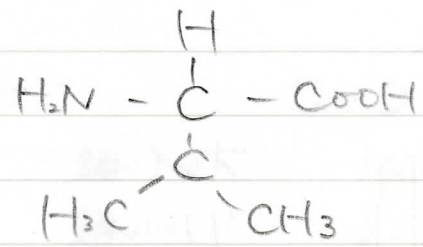 H
H₂N - C - COOH
C
H₃C CH₃